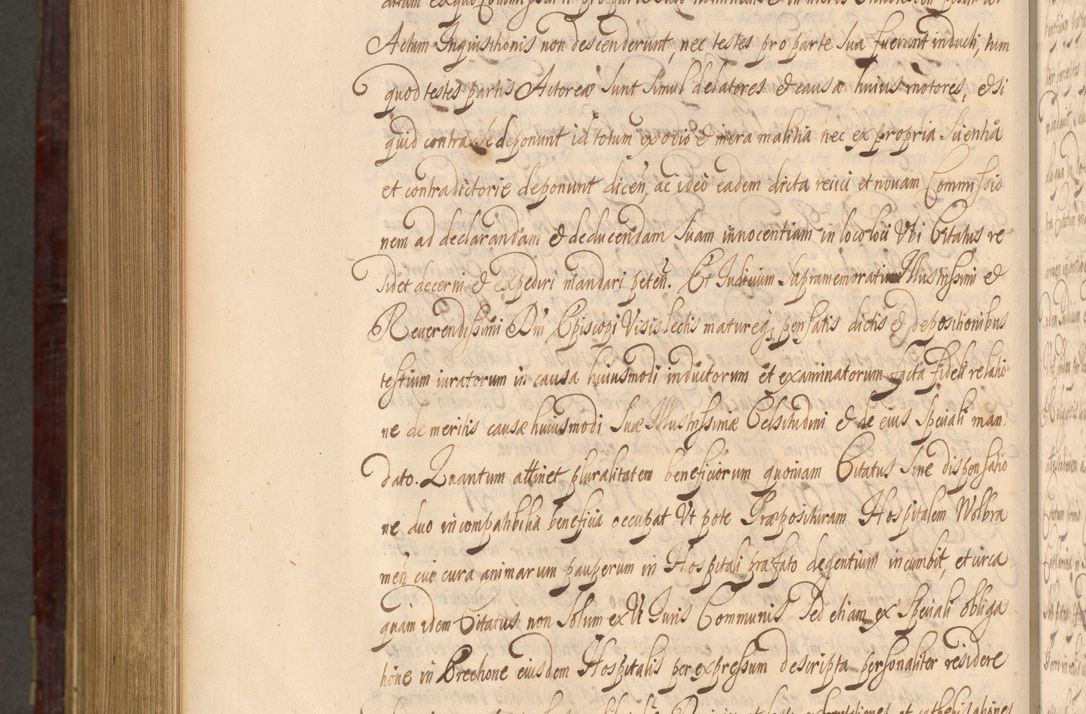 Actum Inquisitionis non descenderunt, nec testes pro parte sua fuerunt inducti, tum
quod testes partis Actoreæ sunt simul delatores et causæ huius motores, et si
quid contra se deponunt id totum ex odio et mera malitia nec ex propria scientia
et contradictorie deponunt dicen, ac ideo eadem dicta reiici et novam Commissio
nem ad declarandam et deducendam suam innocentiam in loco loci Ubi Citatus re
sidet decerni et expediri mandari peteñ. Et Iudicium supramemorati Illustrissimi et
Reverendissimi Dni Episcopi Visis lectis matureq, pensatis dictis et depositionibus
testium iuratorum in causa huiusmodi inductorum et examinatorum facta fideli relatio
ne de meritis causæ huiusmodi Suæ Illustrissimæ Celsitudini et de eius speciali man
dato. Quantum attinet pluralitatem beneficiorum quoniam Citatus sine dispensatio
ne duo incompatibilia beneficia occupat Ut pote Præposituram Hospitalem Wolbra
men cui cura animarum pauperum in Hospitali præfato degentium incumbit, et circa
quam idem Citatus non solum ex Vi Iuris Communis sed etiam ex speciali obliga
tione in Erectione eiusdem Hospitalis per expressum descripta personaliter residere